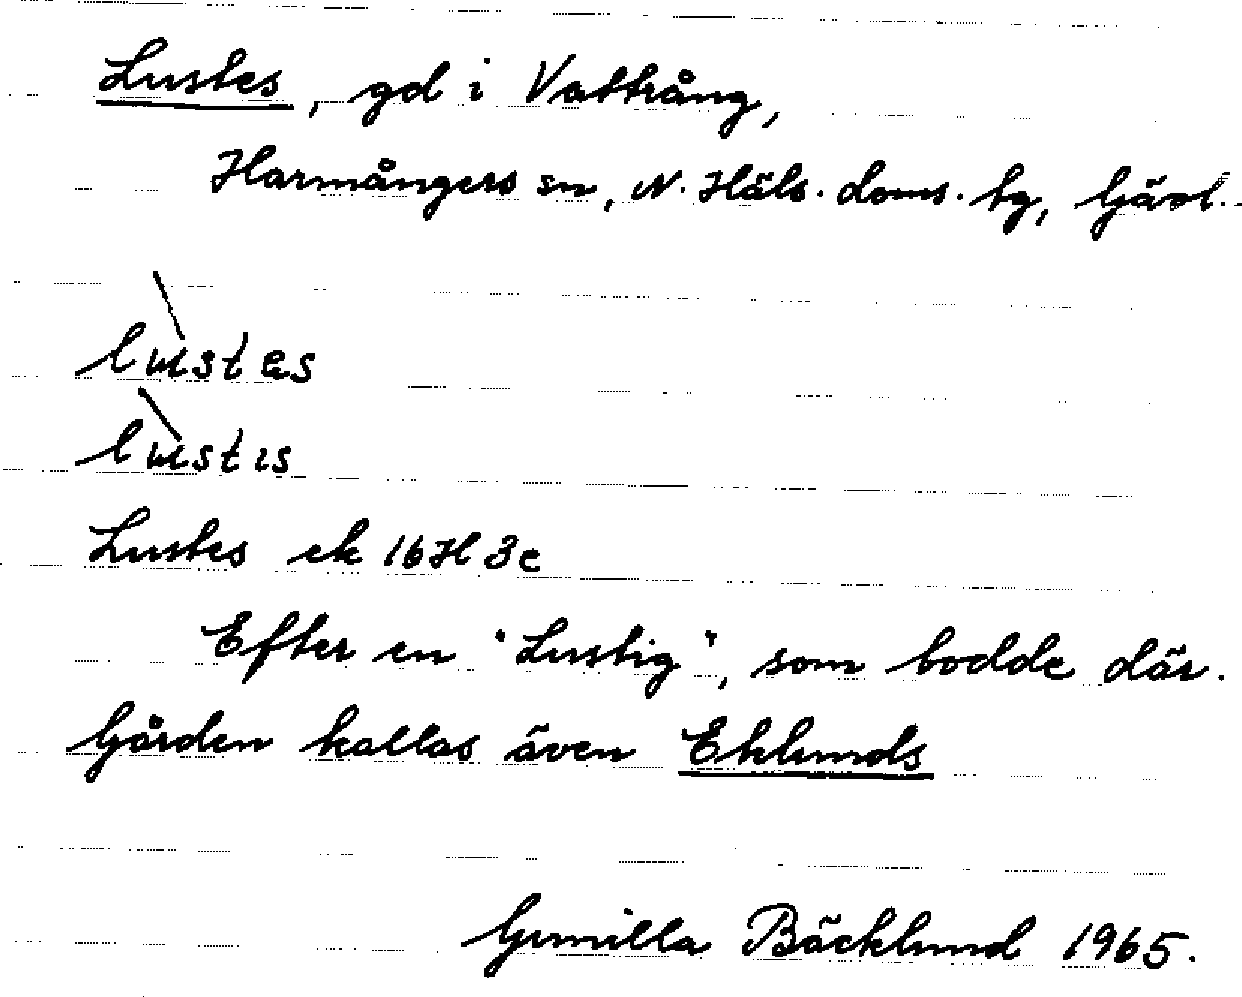 Lustes, gd i Vattrång,
Harmångers sn, N. Häls. doms. tg, Gävl.
lustes
lustis
Lustes ek 16H 3e
Efter en "Lustig", som bodde där.
Gården kallas även Eklunds
Gunilla Bäcklund 1965.